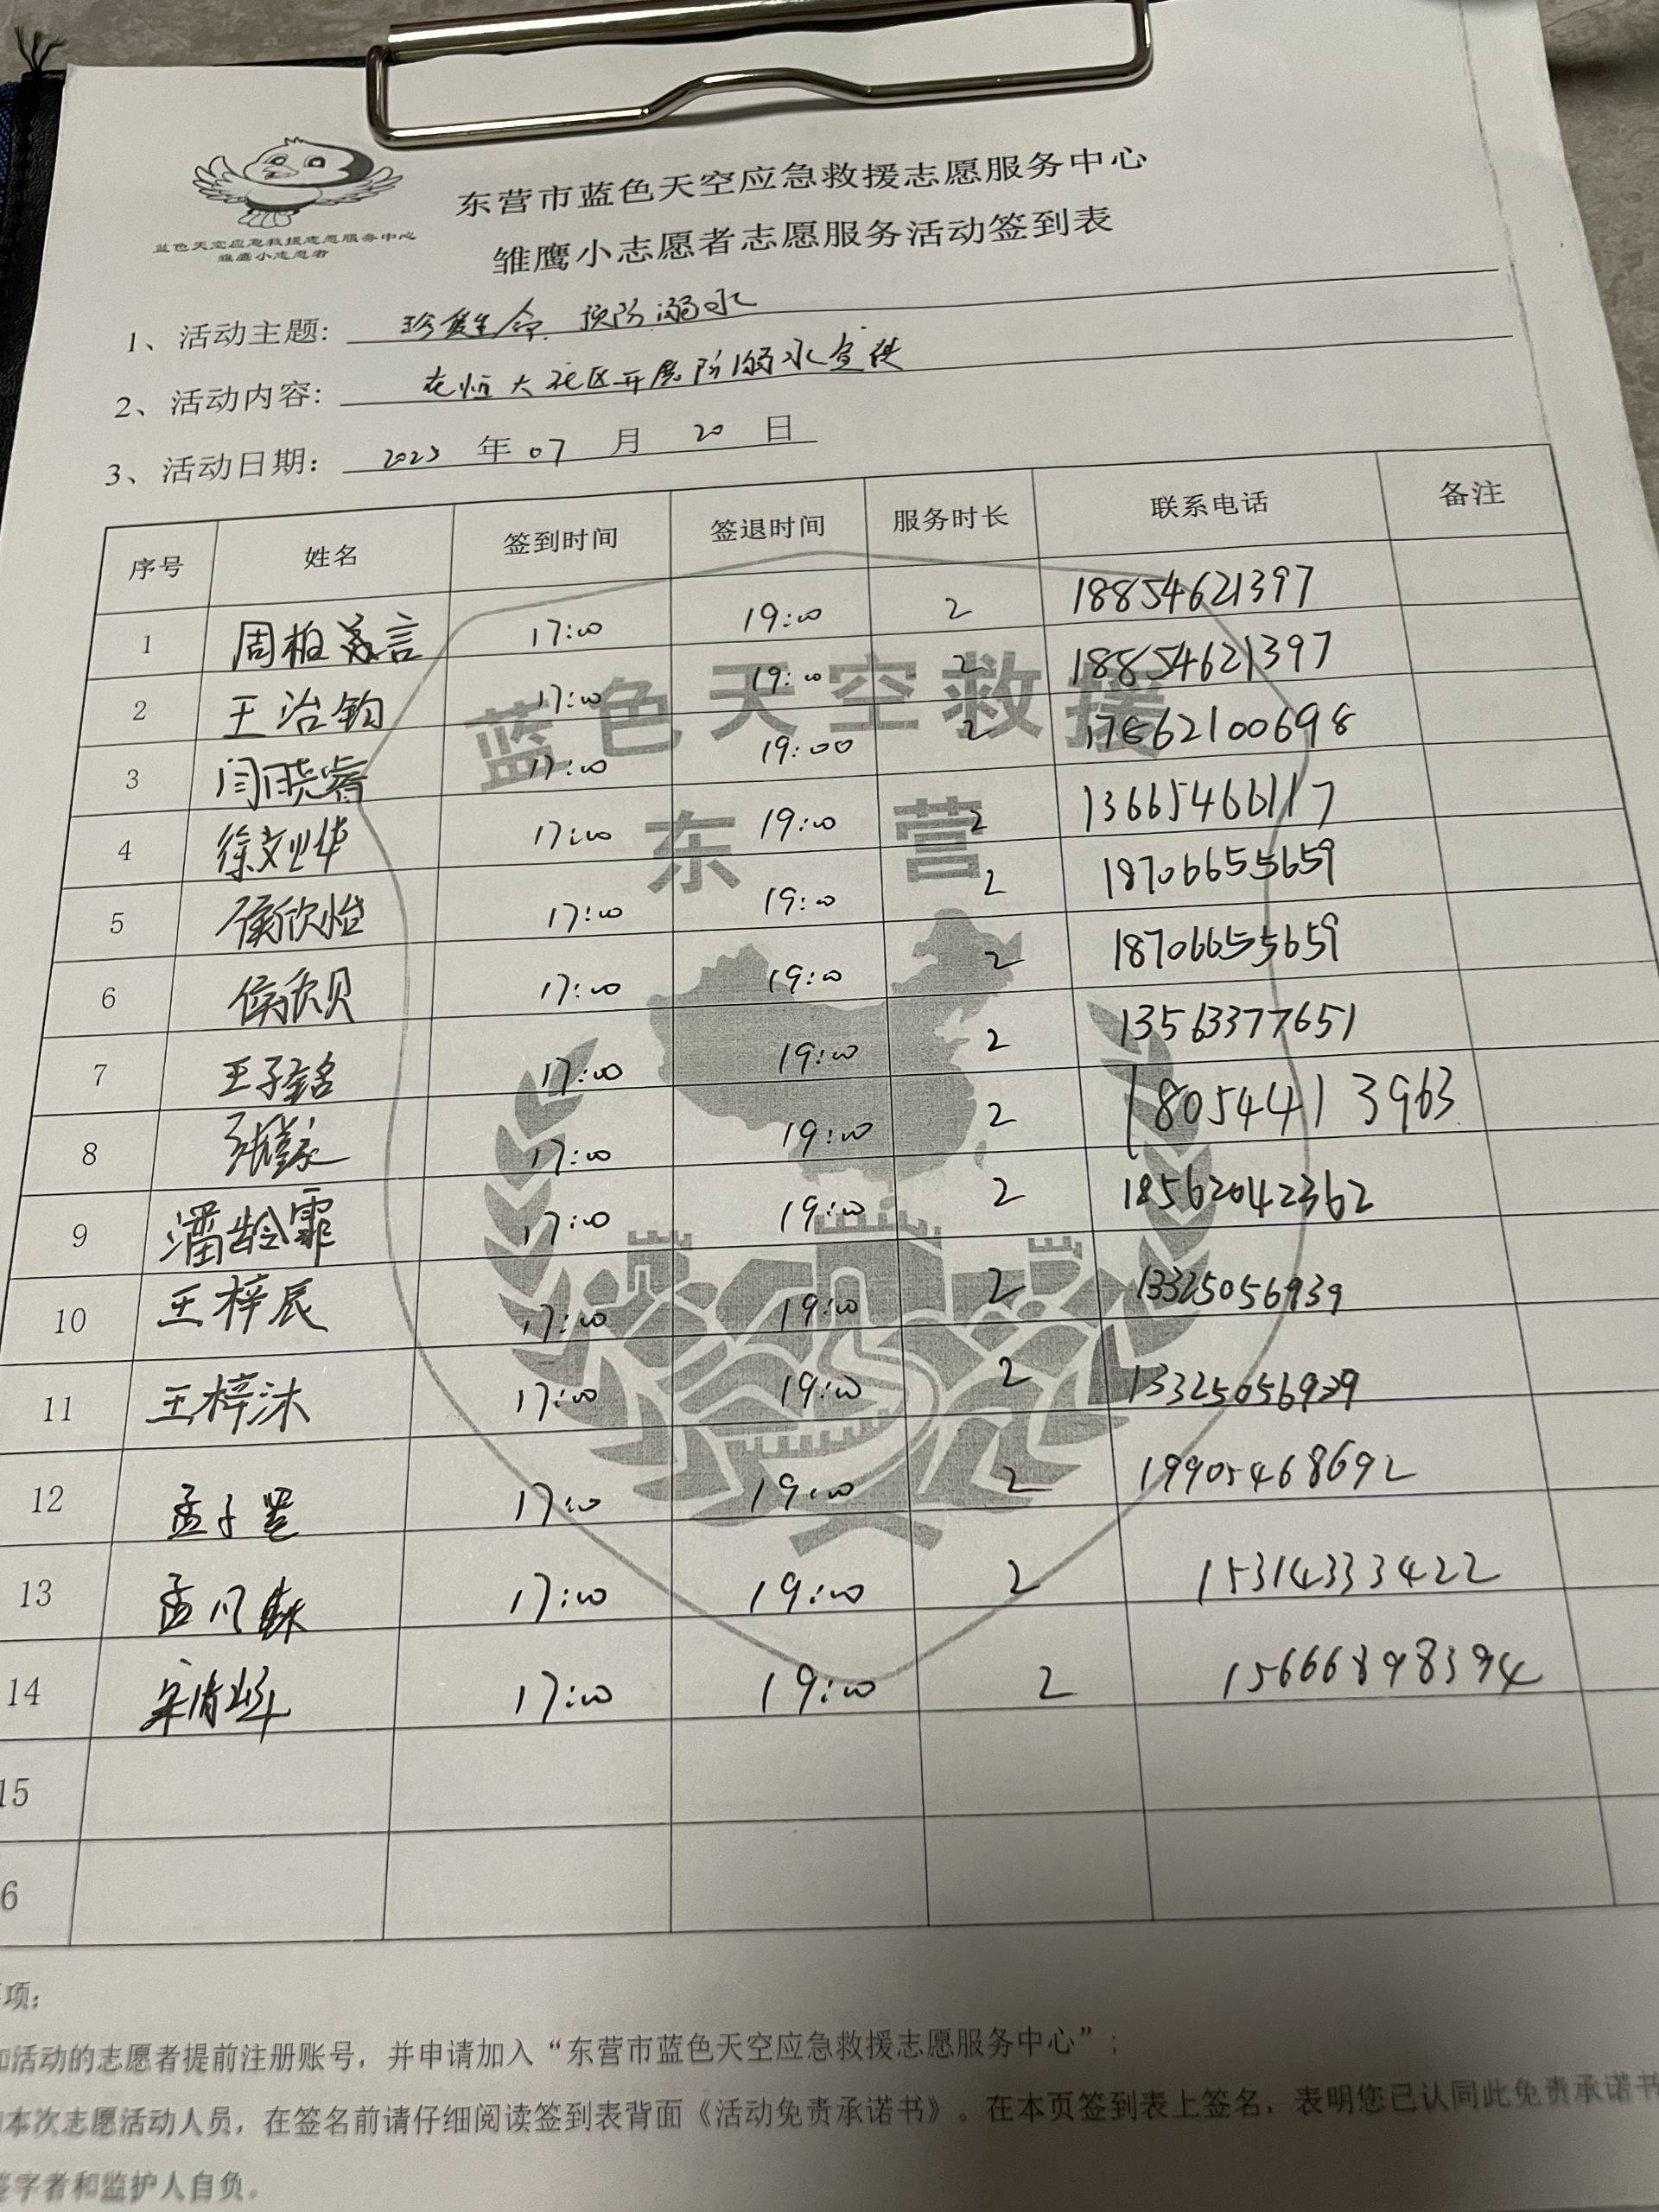 东营市蓝色天空应急救援志愿服务中心
雏鹰小志愿者志愿服务活动签到表
蓝色天空应急救援志愿服务中心
雏鹰小志愿者
1、活动主题: 珍爱生命 预防溺水
2、活动内容: 在恒大社区开展防溺水宣传
3、活动日期: 2023 年 07 月 20 日
序号 姓名 签到时间 签退时间 服务时长 联系电话 备注
1 周柏言 17:00 19:00 2 18854621397
2 王治钧 17:00 19:00 2 18854621397
3 闫晓睿 17:00 19:00 2 17862100698
4 徐文烨 17:00 19:00 2 13665466117
5 侯欣怡 17:00 19:00 2 18706655659
6 侯欣贝 17:00 19:00 2 18706655659
7 王子铭 17:00 19:00 2 13563377651
8 17:00 19:00 2 18054413963
9 潘龄霏 17:00 19:00 2 18562042362
10 王梓辰 17:00 19:00 2 13325056939
11 王梓沐 17:00 19:00 2 13325056939
12 孟子 17:00 19:00 2 19905468692
13 孟凡 17:00 19:00 2 15314333422
14 17:00 19:00 2 15666898394
15
6
蓝色天空救援
东营
项:
加活动的志愿者提前注册账号，并申请加入“东营市蓝色天空应急救援志愿服务中心”；
本次志愿活动人员，在签名前请仔细阅读签到表背面《活动免责承诺书》。在本页签到表上签名，表明您已认同此免责承诺书
签字者和监护人自负。